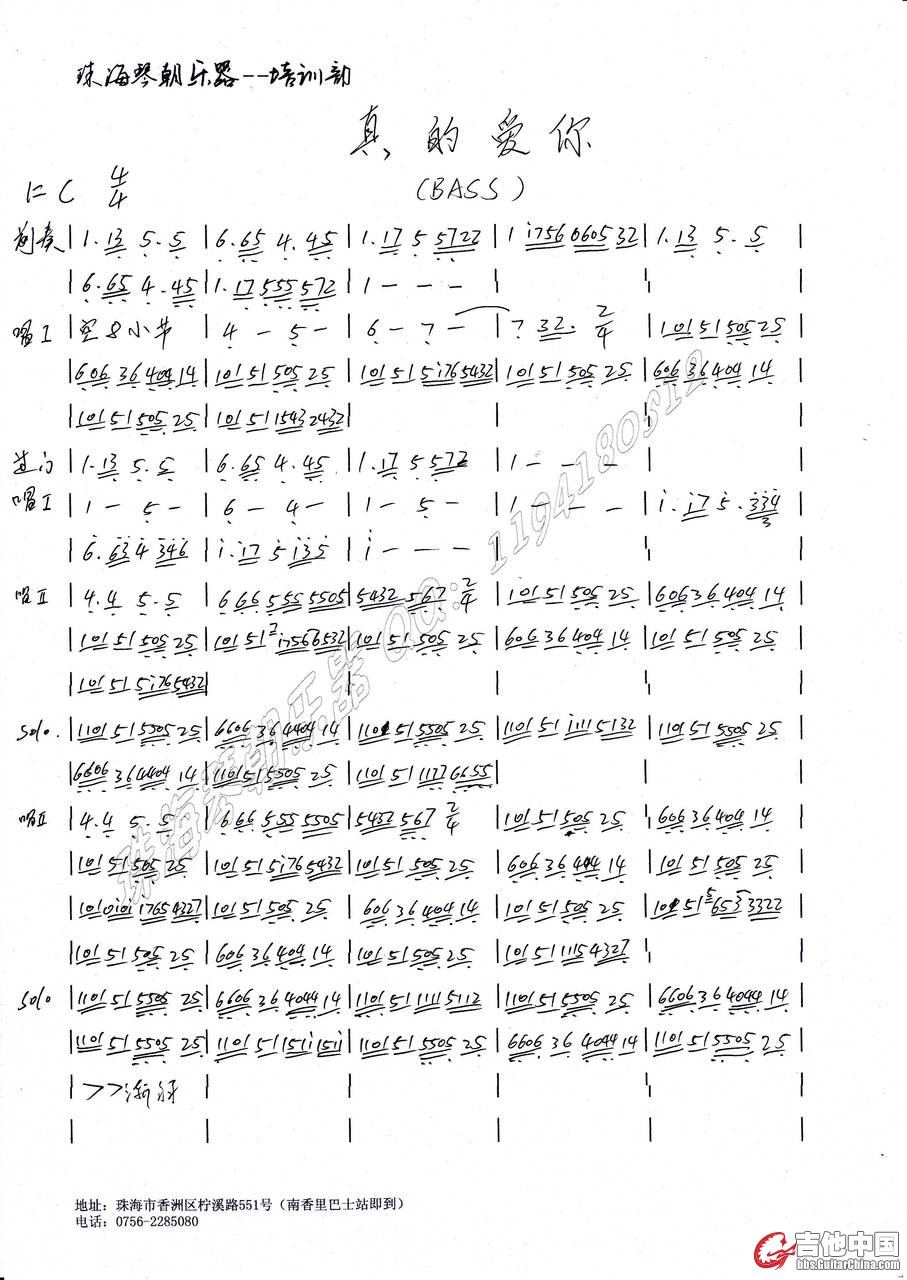 珠海琴朝乐器--培训部
真的爱你
1=C 4/4 (BASS)
前奏 | 1·13 5·5 | 6·65 4·45 | 1·17 5 5722 | 1 i7560605 32 | 1·13 5·5 |
| 6·65 4·45 | 1·17555572 | 1 - - - |
唱I | 空8小节 | 4 - 5 - | 6 - 7 - | 7 32· 2/4 | 101 51 505 25 |
| 606 36 404 14 | 101 51 505 25 | 101 51 5i765432 | 101 51 505 25 | 606 36 404 14 |
| 101 51 505 25 | 101 51 15432432 |
过门 | 1·13 5·5 | 6·65 4·45 | 1·17 5 572 | 1 - - - |
唱I | 1 - 5 - | 6 - 4 - | 1 - 5 - | 1 - - - | i·i7 5·334 3 |
| 6·634 346 | i·i7 5 i35 | i - - - |
唱II | 4·4 5·5 | 666 555 5505 | 5432 567 2/4 | 101 51 505 25 | 606 36 404 14 |
| 101 51 505 25 | 101 51 2 i7566532 | 101 51 505 25 | 606 36 404 14 | 101 51 505 25 |
| 101 51 5i765432 |
solo. | 1101 51 5505 25 | 6606 36 4404 14 | 1101 51 5505 25 | 1101 51 i111 5132 | 1101 51 5505 25 |
| 6606 36 4404 14 | 1101 51 5505 25 | 1101 51 1177 6655 |
唱II | 4·4 5·5 | 666 555 5505 | 5432 567 2/4 | 101 51 505 25 | 606 36 404 14 |
| 101 51 505 25 | 101 51 5i765432 | 101 51 505 25 | 606 36 404 14 | 101 51 505 25 |
| 101 0101 17654327 | 101 51 505 25 | 606 36 404 14 | 101 51 505 25 | 101 51 5 653 3322 |
| 101 51 505 25 | 606 36 404 14 | 101 51 505 25 | 101 51 1154327 |
solo | 1101 51 5505 25 | 6606 36 4044 14 | 1101 51 1111 5112 | 1101 51 5505 25 | 6606 36 4044 14 |
| 1101 51 5505 25 | 1101 51 151i 151i | 1101 51 5505 25 | 6606 36 4044 14 | 1101 51 5505 25 |
| >>渐
珠海琴朝乐器QQ:1194180512
地址:珠海市香洲区柠溪路551号(南香里巴士站即到)
电话:0756-2285080
吉他中国
bbs.GuitarChina.com